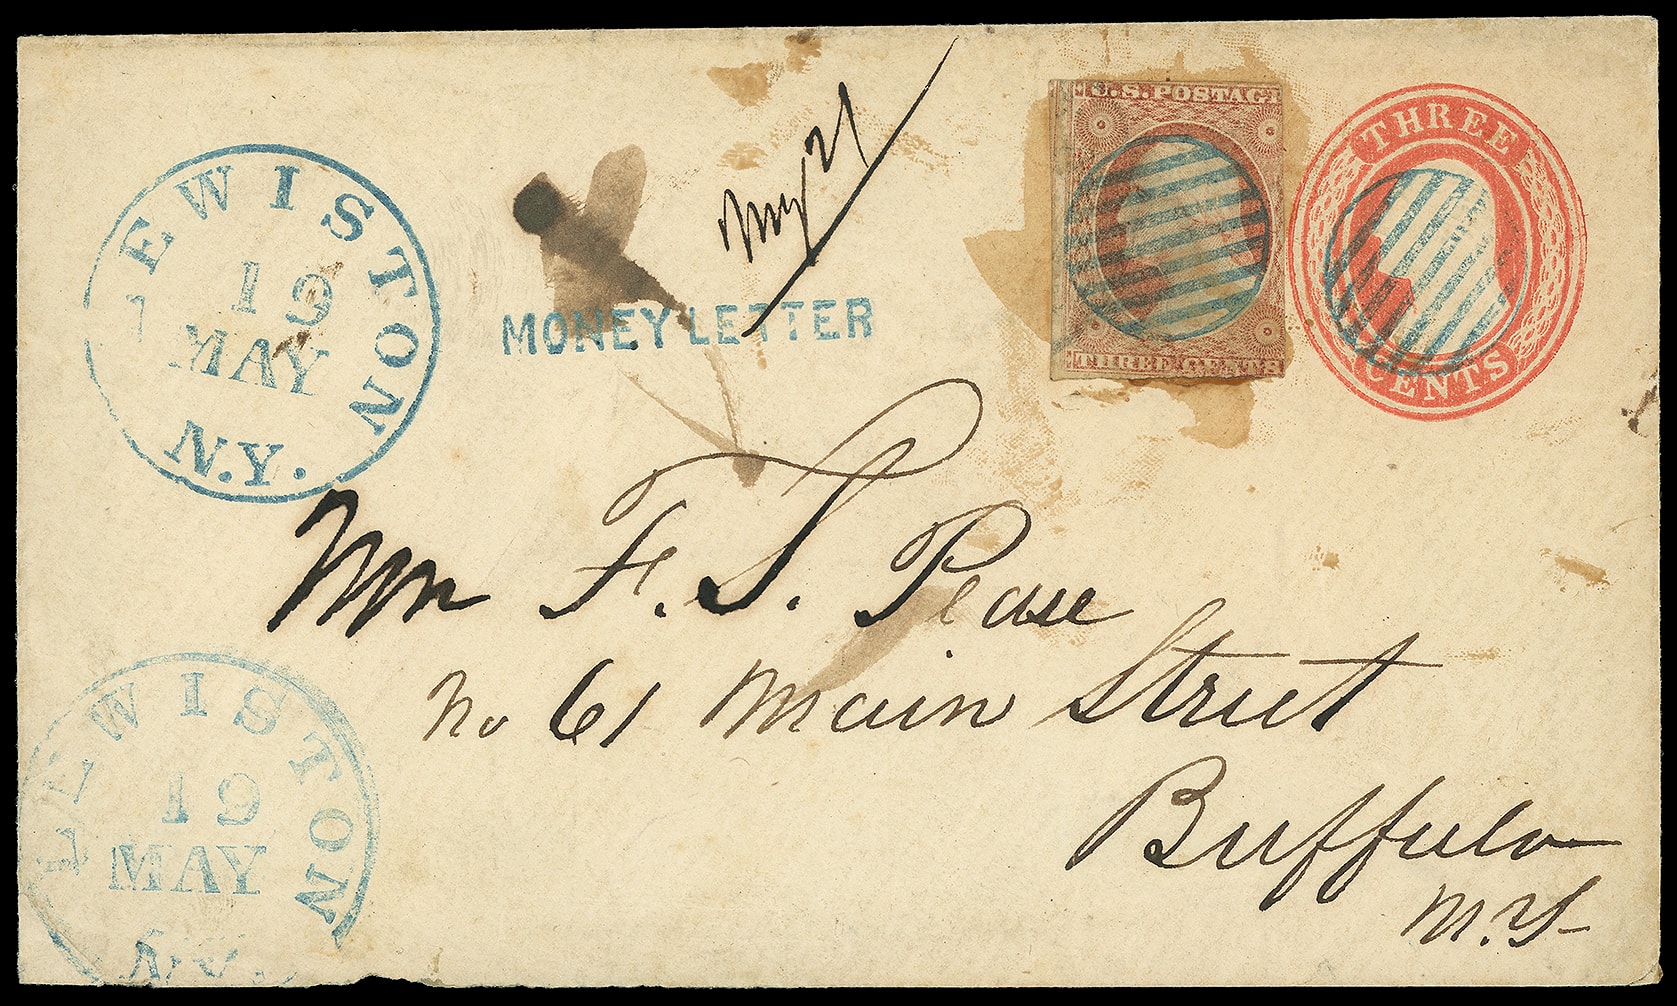 LEWISTON
19
MAY
N.Y.
MONEY LETTER
My 21
U.S. POSTAGE
THREE CENTS
THREE
CENTS
F. S. Pease
No 61 Main Street
Buffalo
N.Y.
LEWISTON
19
MAY
N.Y.